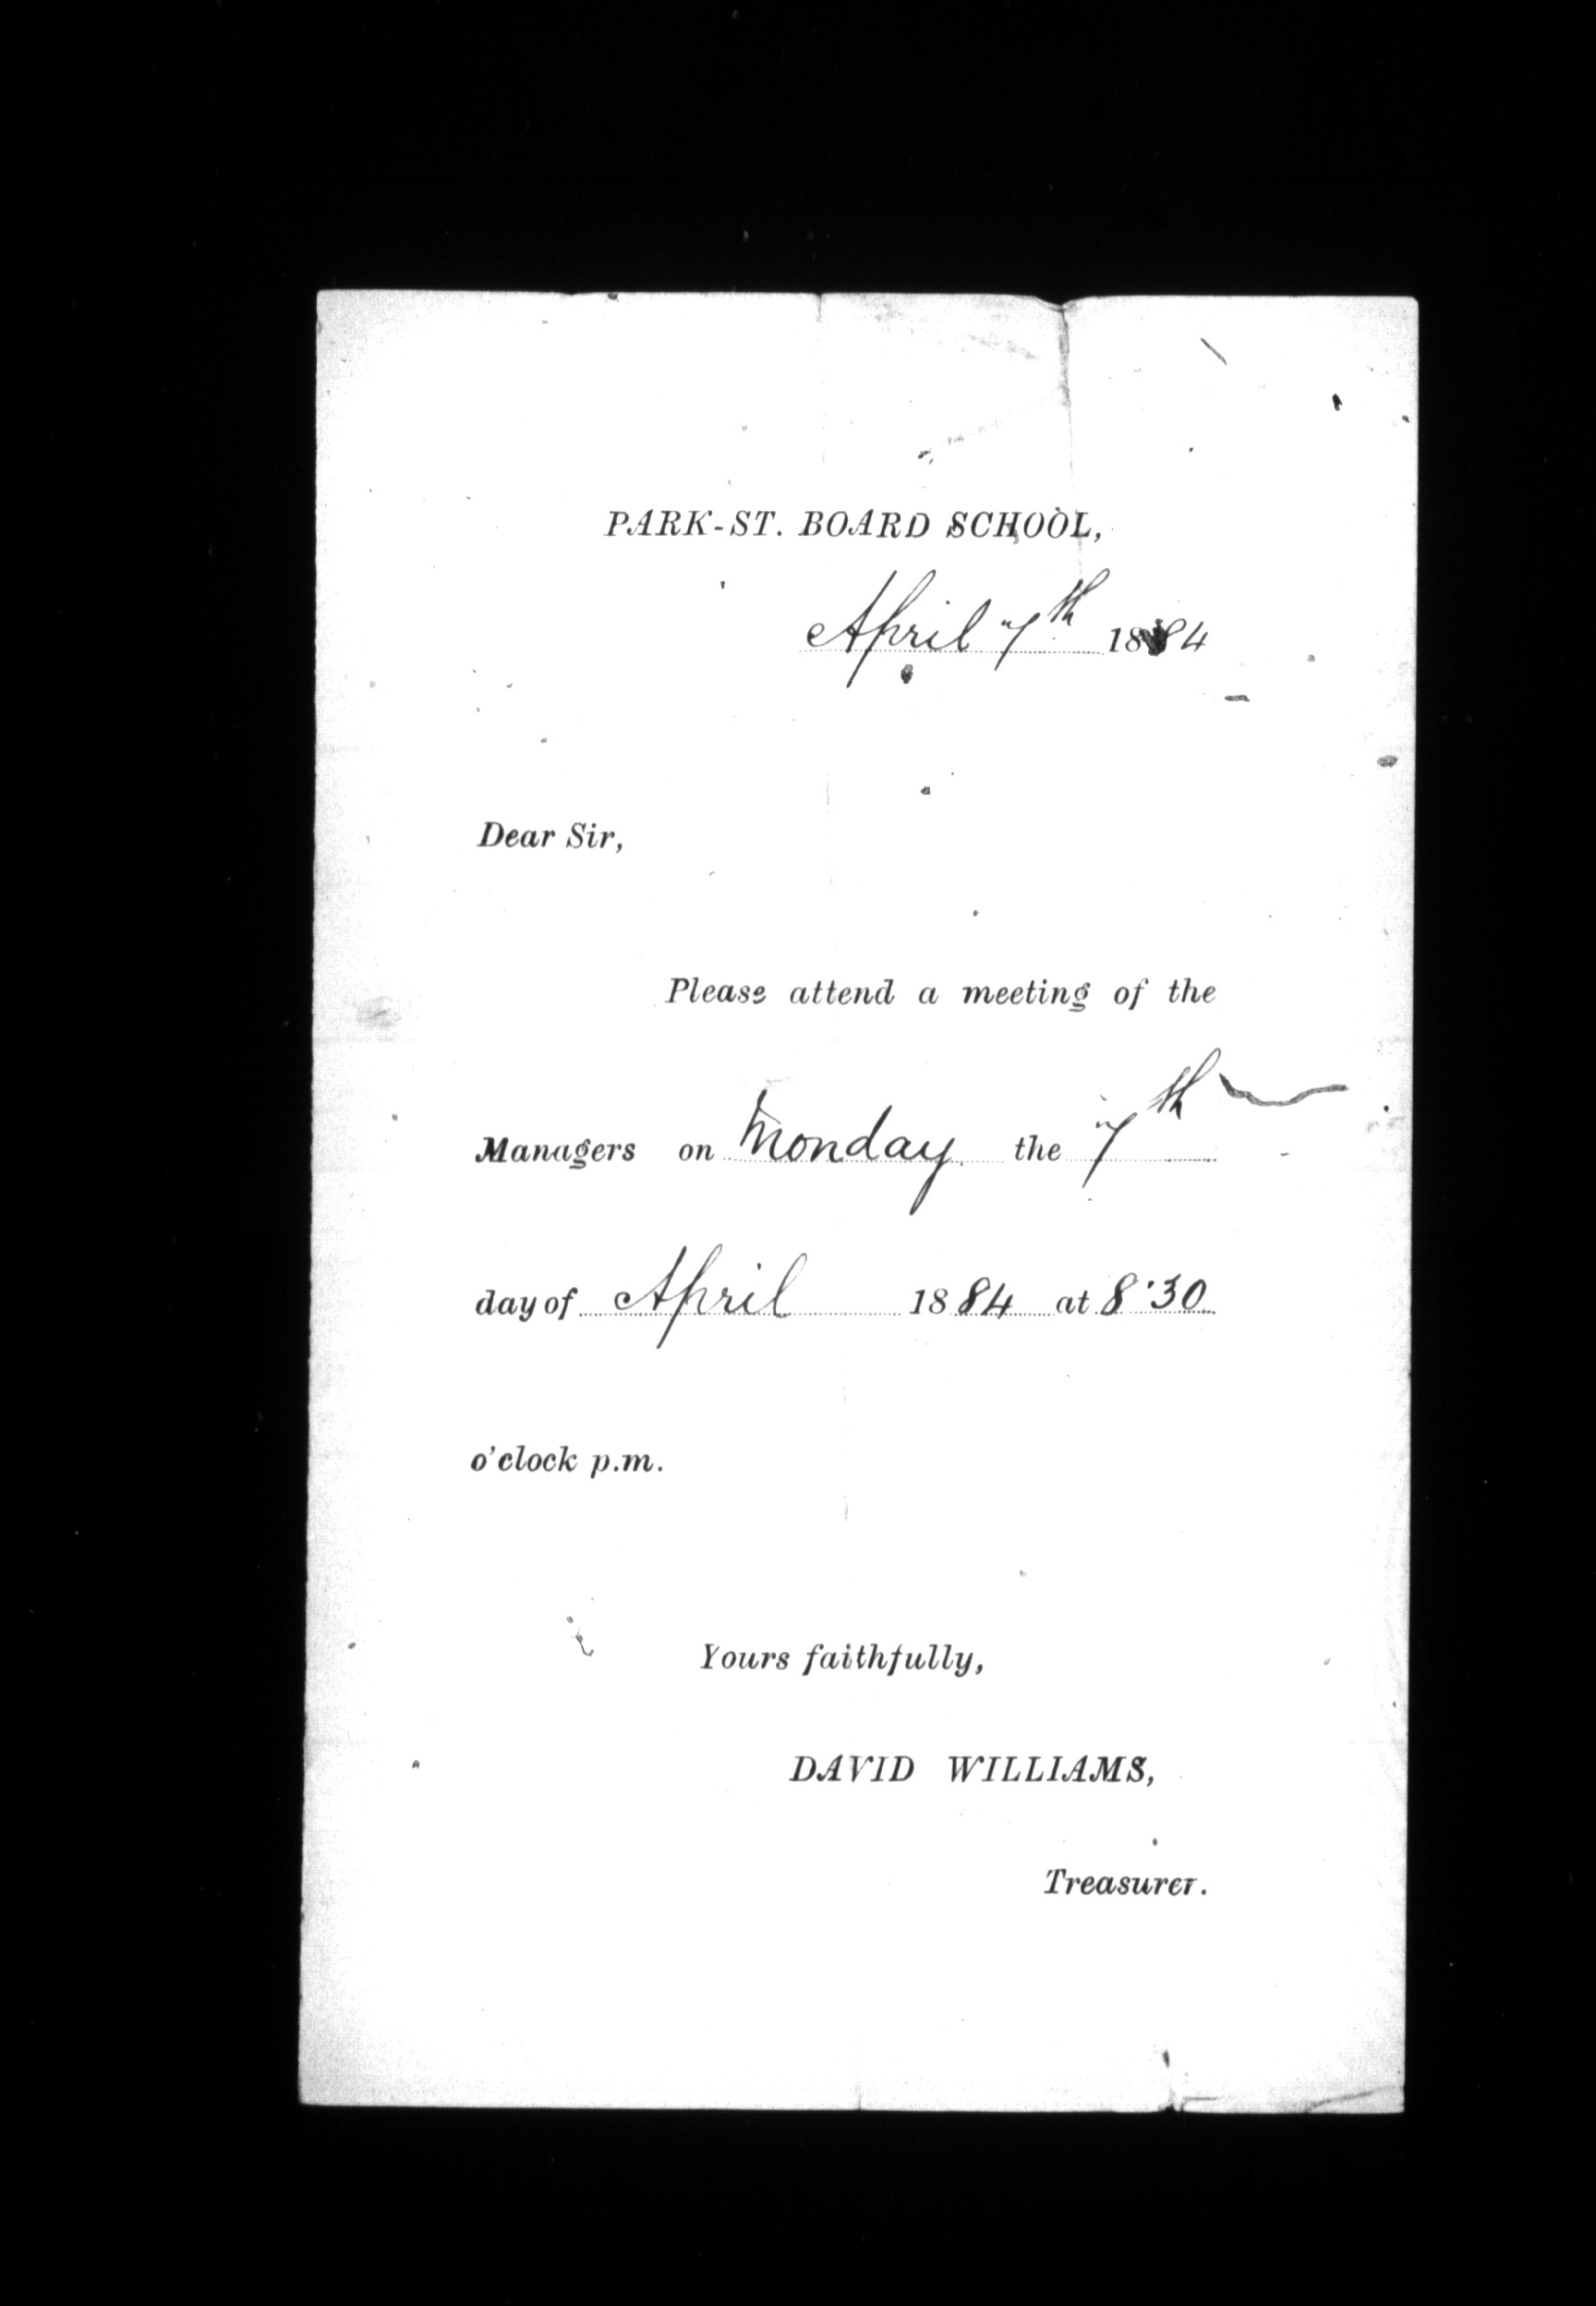 PARK-ST. BOARD SCHOOL,
April 7th 1884
Dear Sir,
Please attend a meeting of the
Managers on Monday the 7th
day of April 1884 at 8·30
o'clock p.m.
Yours faithfully,
DAVID WILLIAMS,
Treasurer.